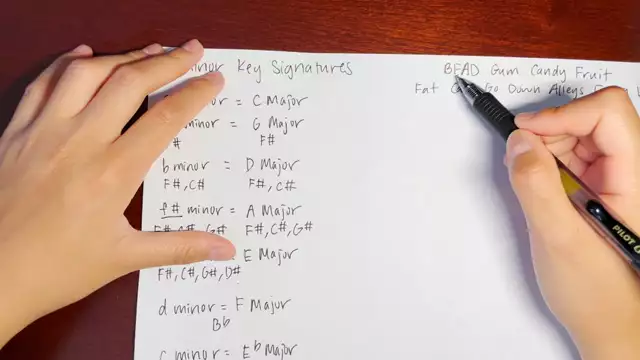 minor Key Signatures
= C Major
minor = G Major
F#
b minor = D Major
F#, C# F#, C#
f# minor = A Major
G# F#, C#, G#
= E Major
F#, C#, G#, D#
d minor = F Major
Bb
c minor = Eb Major
BEAD Gum Candy Fruit
Fat Go Down Alleys
PILOT